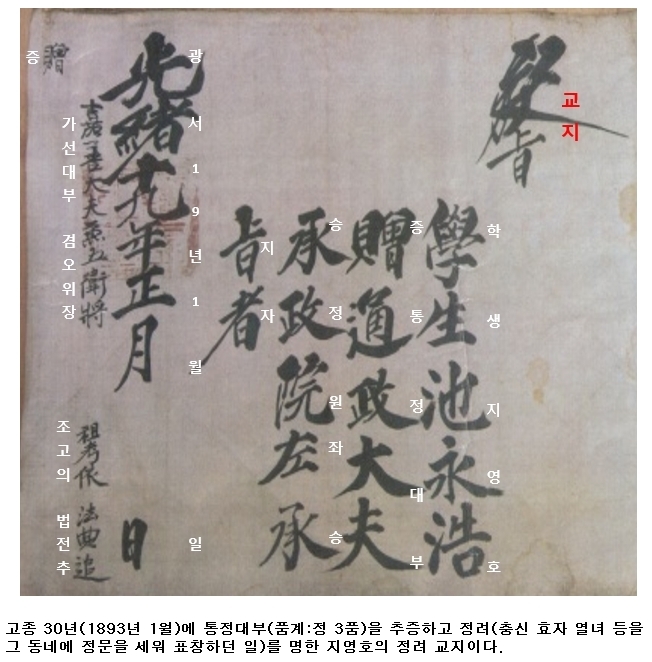 敎旨
교지
學生池永浩
학생지영호
贈通政大夫
증통정대부
承政院左承
승정원좌승
旨者
지자
光緖十九年正月 日
광서19년1월 일
嘉善大夫兼五衛將 祖考依 法典追
가선대부 겸오위장 조고의 법전추
贈
증
고종 30년(1893년 1월)에 통정대부(품계:정 3품)을 추증하고 정려(충신 효자 열녀 등을
그 동네에 정문을 세워 표창하던 일)를 명한 지영호의 정려 교지이다.